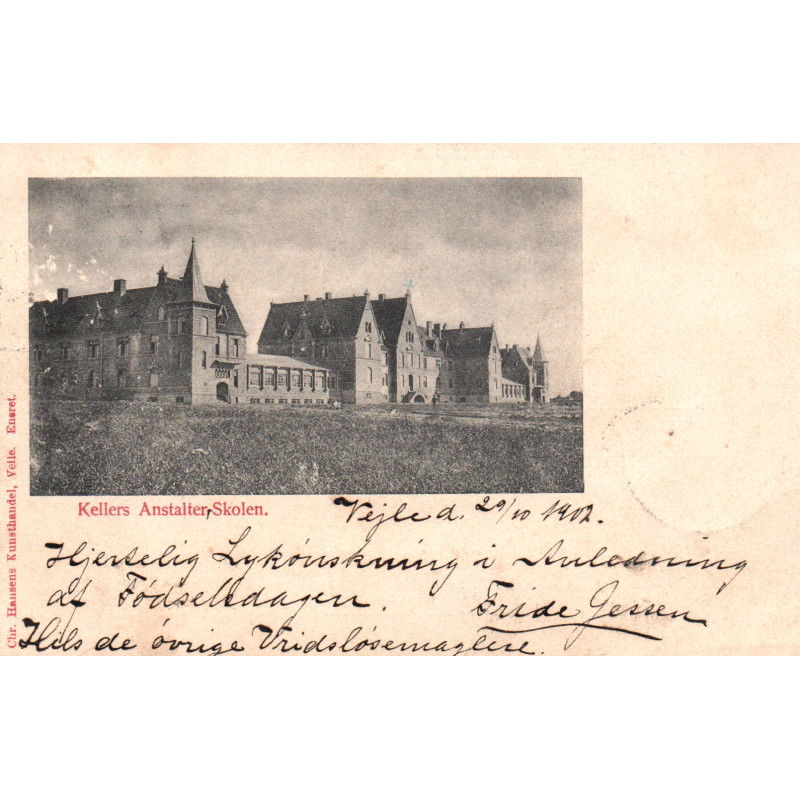 Kellers Anstalter, Skolen.
Vejle d. 29/10 1902.
Hjertelig Lykönskning i Anledning
af Födselsdagen. Fride Jessen
Hils de övrige Vridslösemaglere.
Chr. Hansens Kunsthandel, Veile. Eneret.